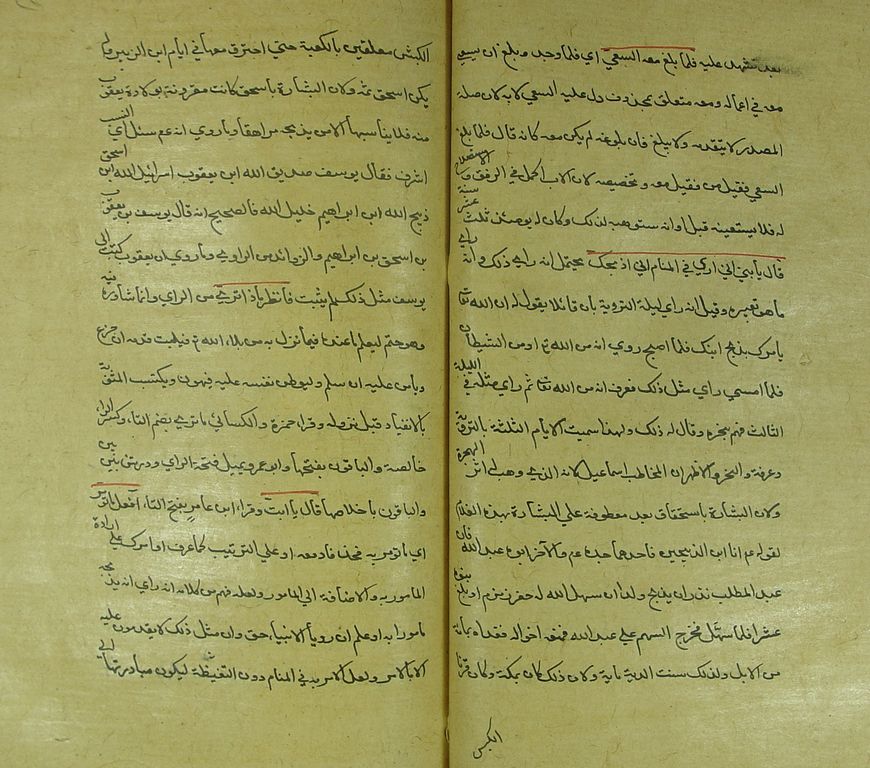 بعد تشهد عليه فلما بلغ معه السعي اي فلما وجد وبلغ ان يسعي
معه في اعماله ومعه متعلق بمحذوف دل عليه السعي لا به لان صلة
المصدر لا يتقدمه ولا يبلغ فان بلوغه لم يكن معه كانه قال فلما بلغ
السعي فقيل من فقيل معه وتخصيصه لان الاب اكمل في الرفق والاستصلاح
له فلا يستسعيه قبل اوانه سنة ستوهبه لذلك وكان له يومئذ ثلث عشر
قال يا بني اني اري في المنام اني اذبحك يحتمل انه راي ذلك وانه راي
ما هو تعبيره وقيل انه راي ليلة التروية بان قائلا يقول له ان الله تعا
يامرك بذبح ابنك فلما اصبح روي انه من الله تع او من الشيطان
فلما امسي راي مثل ذلك فعرف انه من الله تعا ثم راي مثله في الليلة
الثالث فهم بنحره وقال له ذلك ولهذا سميت الايام الثلثة بالتروية
وعرفة والنحر والاظهر ان المخاطب اسماعيل لانه الذي وهب له اثر الهجرة
ولان البشارة باسحق بعد معطوفة علي البشارة بهذا الغلام
لقوله عم انا ابن الذبيحين فاحدهما جده عم والآخر ابوه عبد الله فان
عبد المطلب نذر ان يذبح ولدا ان سهل الله له حفر زمزم او بلغ بنوه
عشرا فلما سهّل فخرج السهم علي عبد الله فمنعه اخواله ففداه بمائة
من الابل ولذلك سنت الدية ماية ولان ذلك كان بمكة وكان قرنا
الكبش
الكبش معلقين بالكعبة حتي احترق معها في ايام ابن الزبير ولم
يكن اسحق ثمه ولان البشارة باسحق كانت مقرونة بولادة يعقوب
منه فلا يناسبها الامر بذبحه مراهقا وما روي انه عم سئل اي النسب
اشرف فقال يوسف صديق الله ابن يعقوب اسرائيل الله ابن اسحق
ذبيح الله ابن ابراهيم خليل الله فالصحيح انه قال يوسف بن يعقوب
بن اسحق بن ابراهيم والزوائد من الراوي وما روي ان يعقوب كتب الي
يوسف مثل ذلك لم يثبت فانظر ماذا تري من الراي وانما شاوره فيه
وهو حتم ليعلم ما عنده فيما نزل به من بلاء الله تع فيثبت قدمه ان جزع
ويامن عليه ان سلم وليوطن نفسه عليه فيهون ويكتسب المثوبة
بالانقياد قبل نزوله وقرا حمزة والكسائي ما تري بضم التاء وكسر الراء
خالصة والباقون بفتحها وابو عمرو يميل فتحة الراي وورش بين بين
والباقون باخلاصها قال يا ابت وقراء ابن عامر بفتح التاء افعل ما تومر
اي ما تومر به فحذفا دفعه او علي الترتيب كما عرف او امرك علي ارادة
المامور به والاضافة الي المامور ولعله فهم من كلامه انه راي انه يذبحه
مامورا به او علم ان رويأ الانبيا حق وان مثل ذلك لا يقدمون عليه
الا بالامر ولعل الامر به في المنام دون اليقيظة ليكون مبادرتهما الي